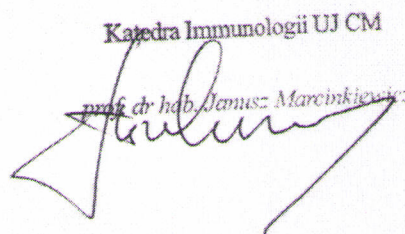 Katedra Immunologii UJ CM
prof. dr hab. Janusz Marcinkiewicz